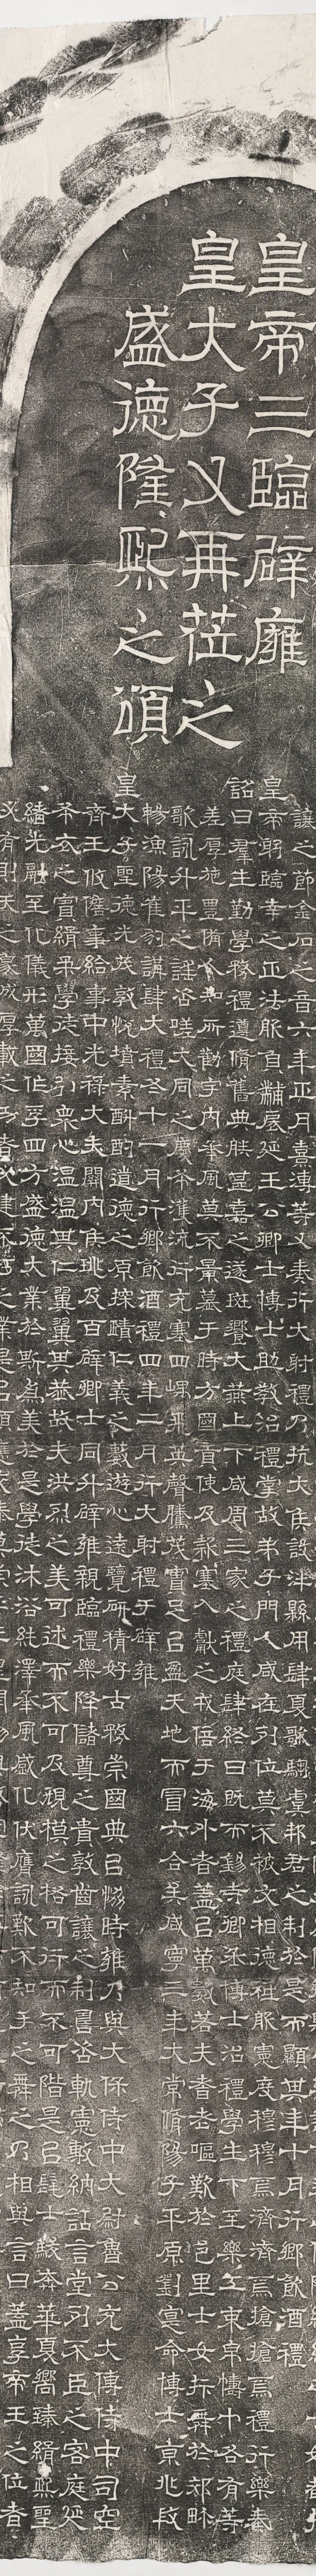 皇帝三臨辟雍
皇大子又再莅之
盛德隆熙之頌
讓之節金石之音六年正月熹溥等又奏行大射禮乃抗大侯設泮縣用肆夏歌騶虞邦君之制於是而顯其年十月行鄉飲酒禮
皇帝躬臨幸之正法服負黼扆延王公卿士博士助教治禮掌故弟子門人咸在列位莫不被文相德祗服憲度穆穆焉濟濟焉搶搶焉禮行樂奏
詔曰羣生勤學務禮遵脩舊典朕甚嘉之遂班饗大燕上下咸周三家之禮庭肆終日既而錫寺卿丞博士治禮學生下至樂工束帛幬巾各有等
差厚施豐備人知所勸宇內承風莫不景慕于時方國貢使及款塞入獻之戎倍于海外者蓋以萬數若夫耆老嘔歎於邑里士女抃舞於郊畛
歌詠升平之謠咨嗟大同之慶布濩流衍充塞四嵎飛英聲騰茂實足以盈天地而冒六合矣咸寧三年大常脩陽子平原劉寔命博士京兆段
暢漁陽崔豹講肆大禮冬十一月行鄉飲酒禮四年二月行大射禮于辟雍
皇大子聖德光茂敦悅墳素斟酌道德之原探賾仁義之藪遊心遠覽研精好古務崇國典以協時雍乃與大保侍中大尉魯公充大傅侍中司空
齊王攸儋事給事中光祿大夫關內侯珧及百辟卿士同升辟雍親臨禮樂降儲尊之貴敦齒讓之制咨軌憲敷納話言堂列不臣之客庭延
布衣之賓緝柔學徒接引衆心溫溫其仁翼翼其恭故夫洪烈之美可述而不可及規模之格可行而不可階是以髦士駿奔華夏嚮臻緝熙聖
緒光融至化儀形萬國作孚四方盛德大業於斯爲美於是學徒沐浴純澤承風感化伏膺詠歎不知手之舞之乃相與言曰蓋享帝王之位者